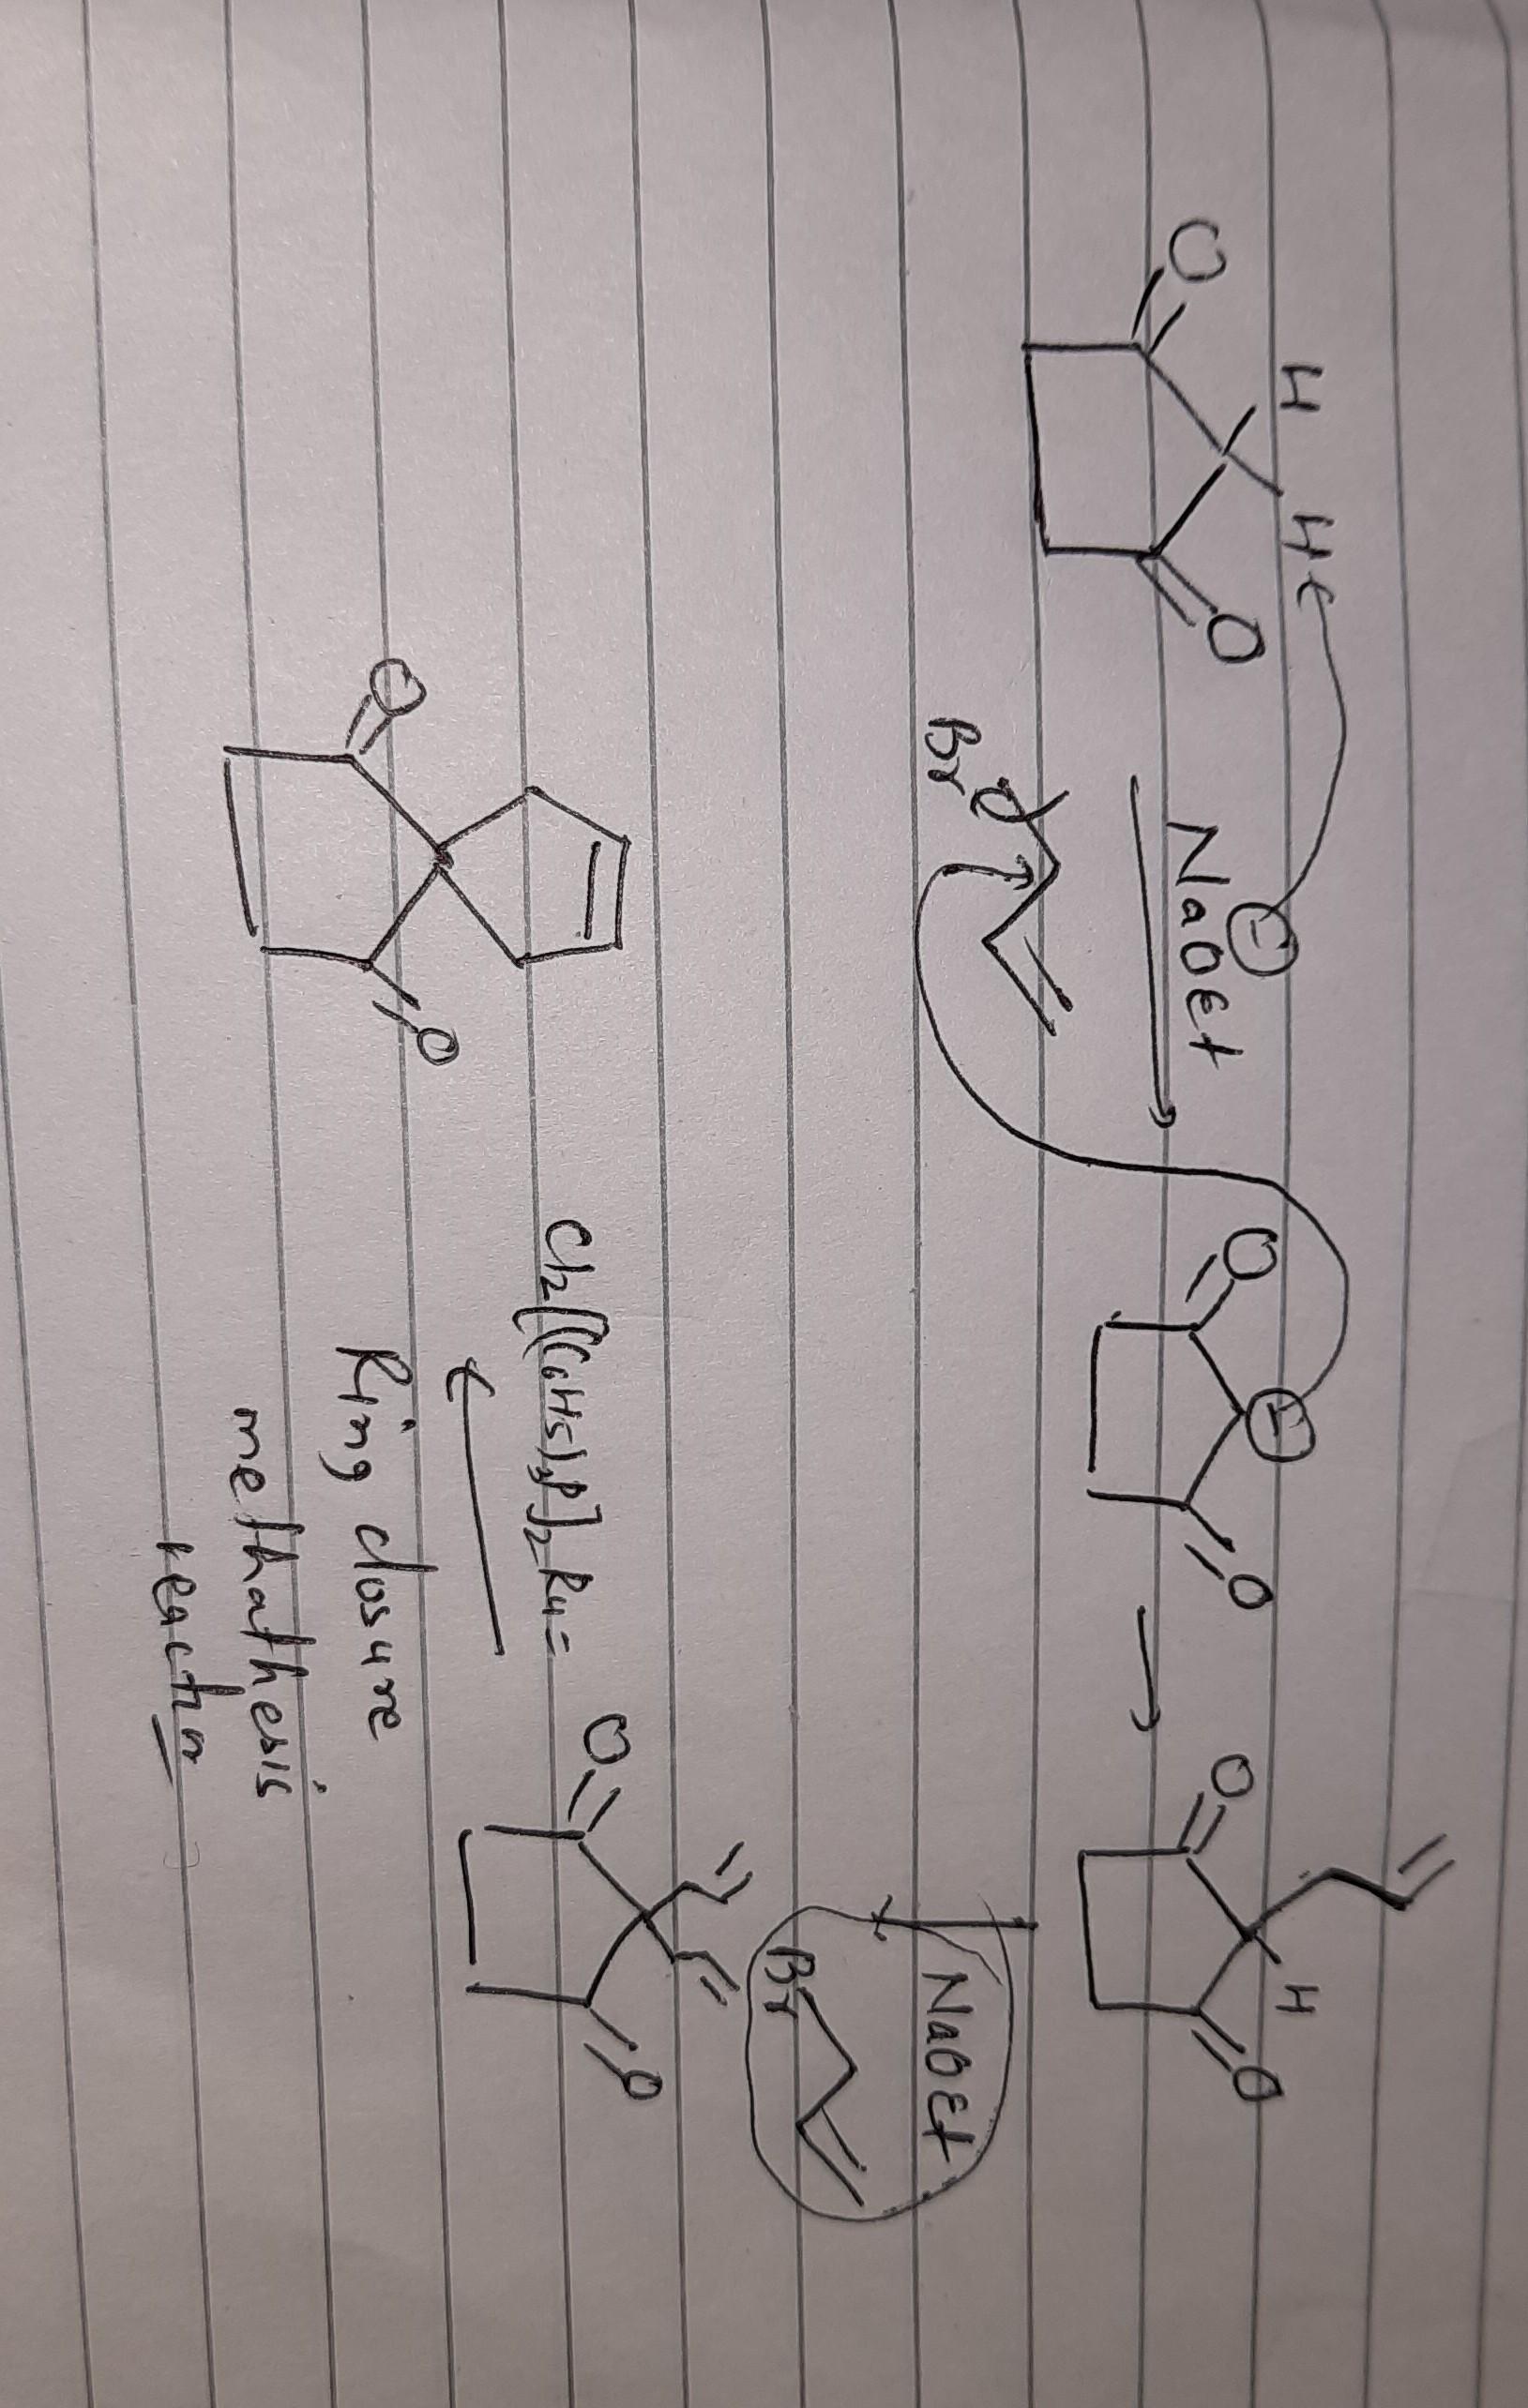 H H
O O
NaOEt
Br
O O
O H O
NaOEt
Br
O O
Cl2[(C6H5)3P]2Ru=
Ring closure
methathesis
reaction
O O